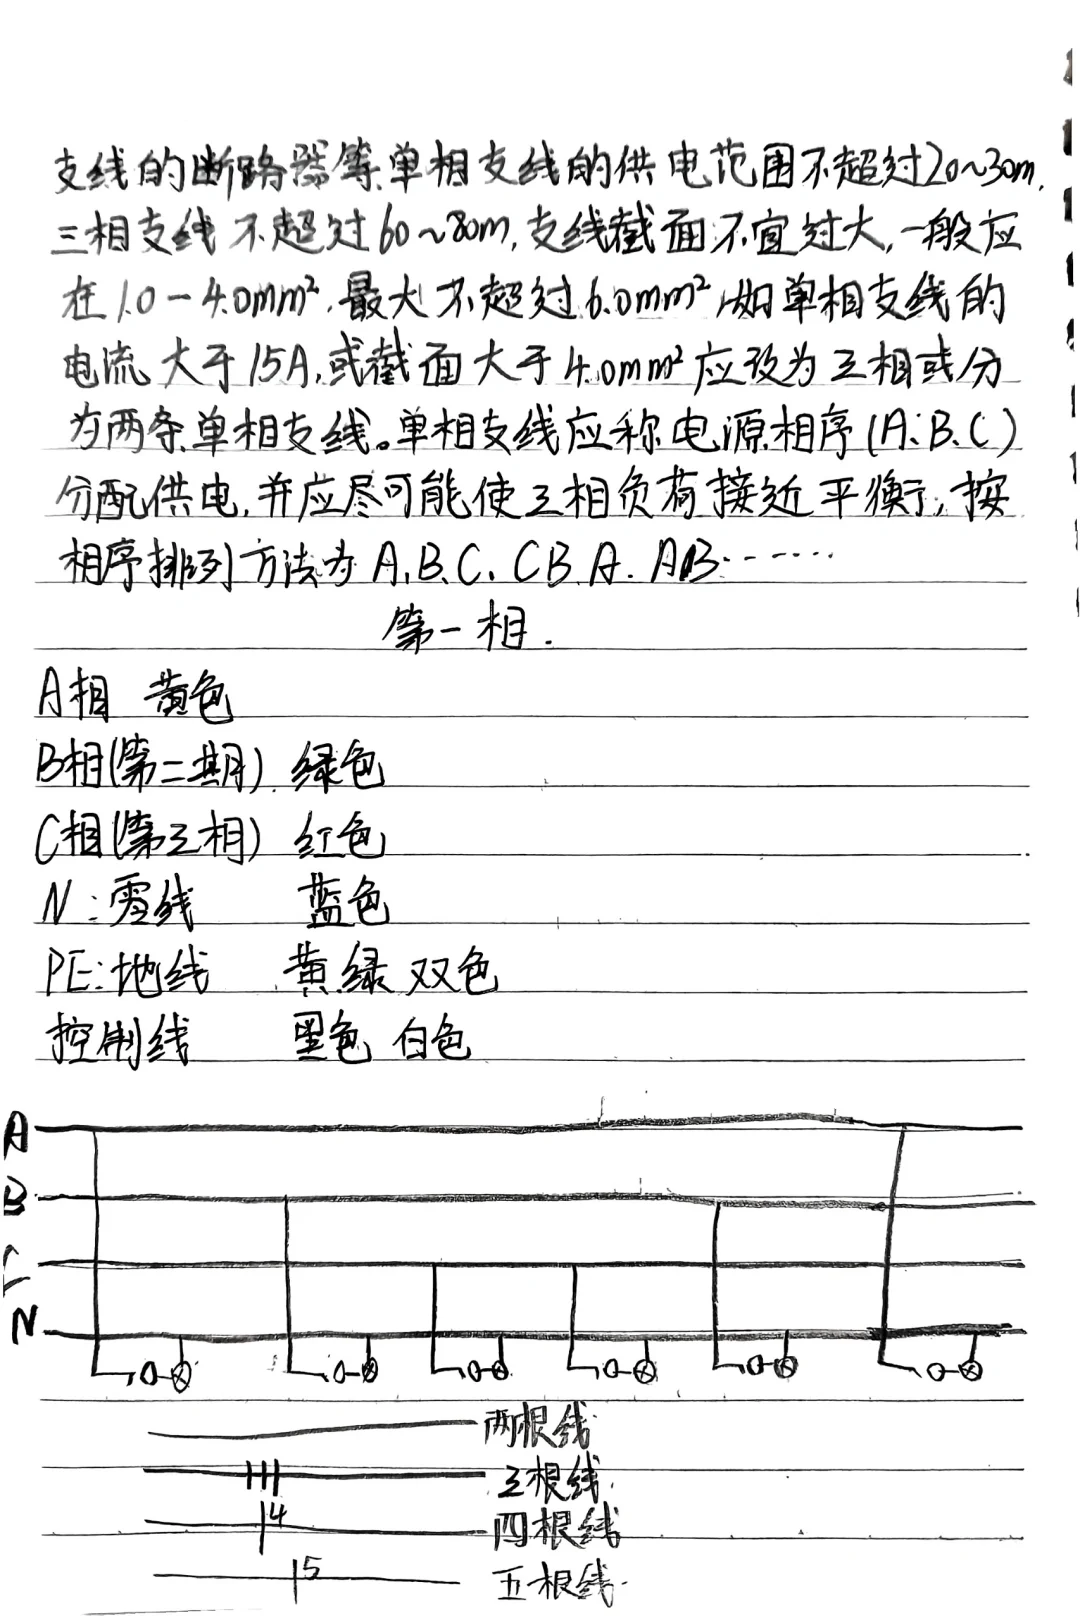 支线的断路器等单相支线的供电范围不超过20~30m,
三相支线不超过60~80m,支线截面不宜过大,一般应
在1.0-4.0mm²,最大不超过6.0mm²,如单相支线的
电流大于15A,或截面大于4.0mm²应改为三相或分
为两条单相支线。单相支线应称电源相序(A.B.C)
分配供电,并应尽可能使三相负荷接近平衡,按
相序排列方法为A.B.C.CB.A.AB……
第一相.
A相 黄色
B相(第二期) 绿色
C相(第三相) 红色
N:零线 蓝色
PE:地线 黄绿双色
控制线 黑色 白色
A
B
C
N
两根线
三根线
4 四根线
5 五根线